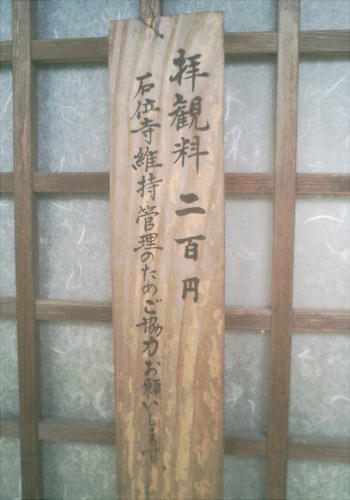 拝観料 二百円
石位寺維持管理のためご協力お願いします